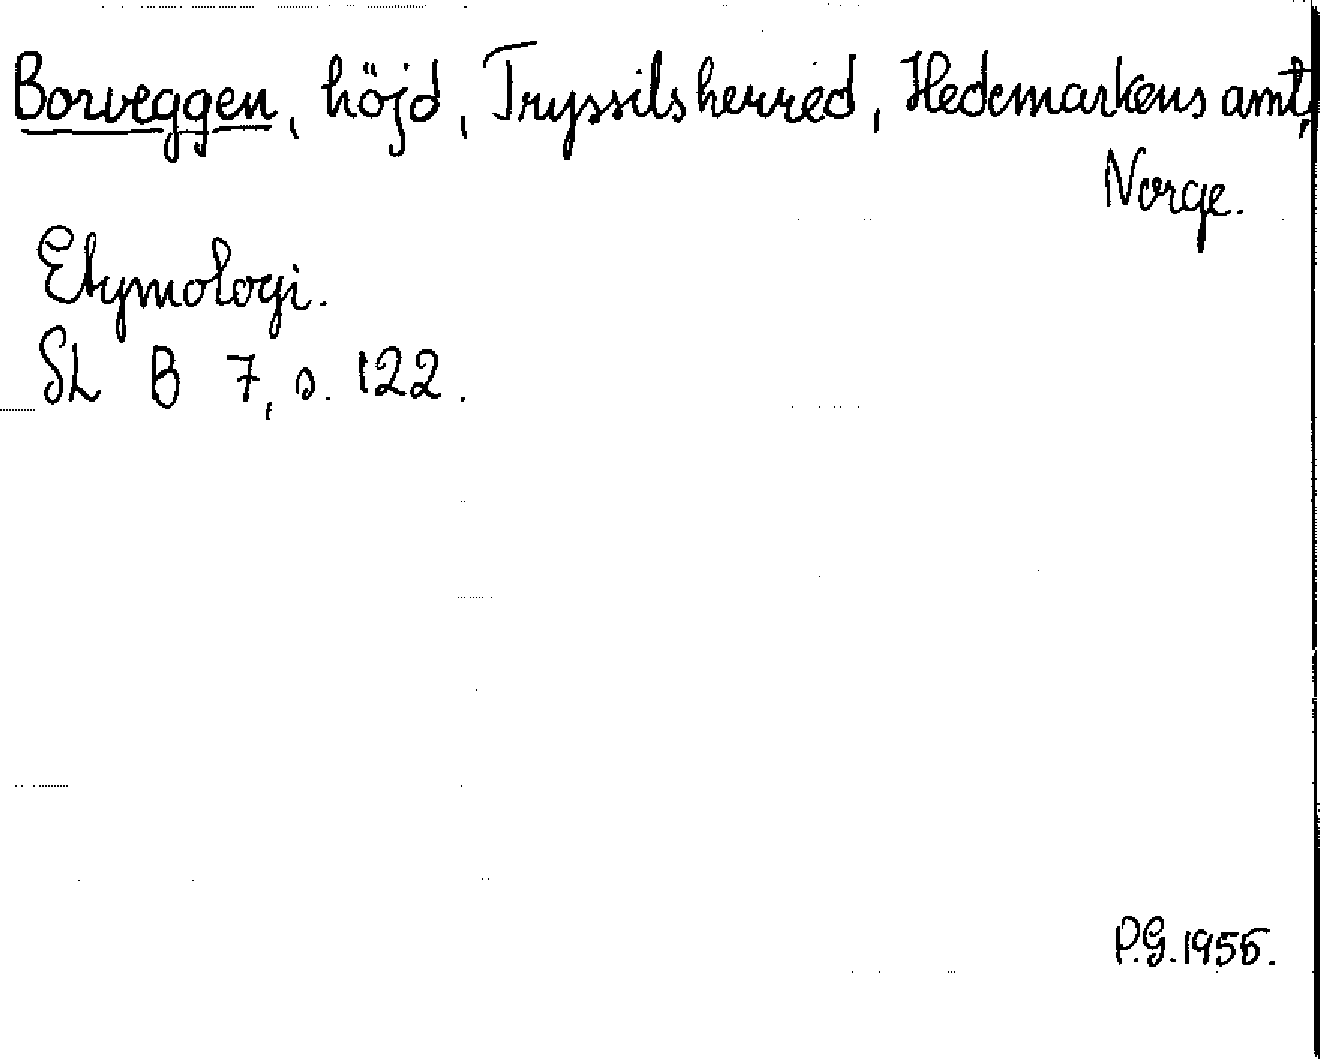 Borveggen, höjd, Tryssils herred, Hedemarkens amt,
Norge.
Etymologi.
SL B 7, s. 122.
P.G. 1955.